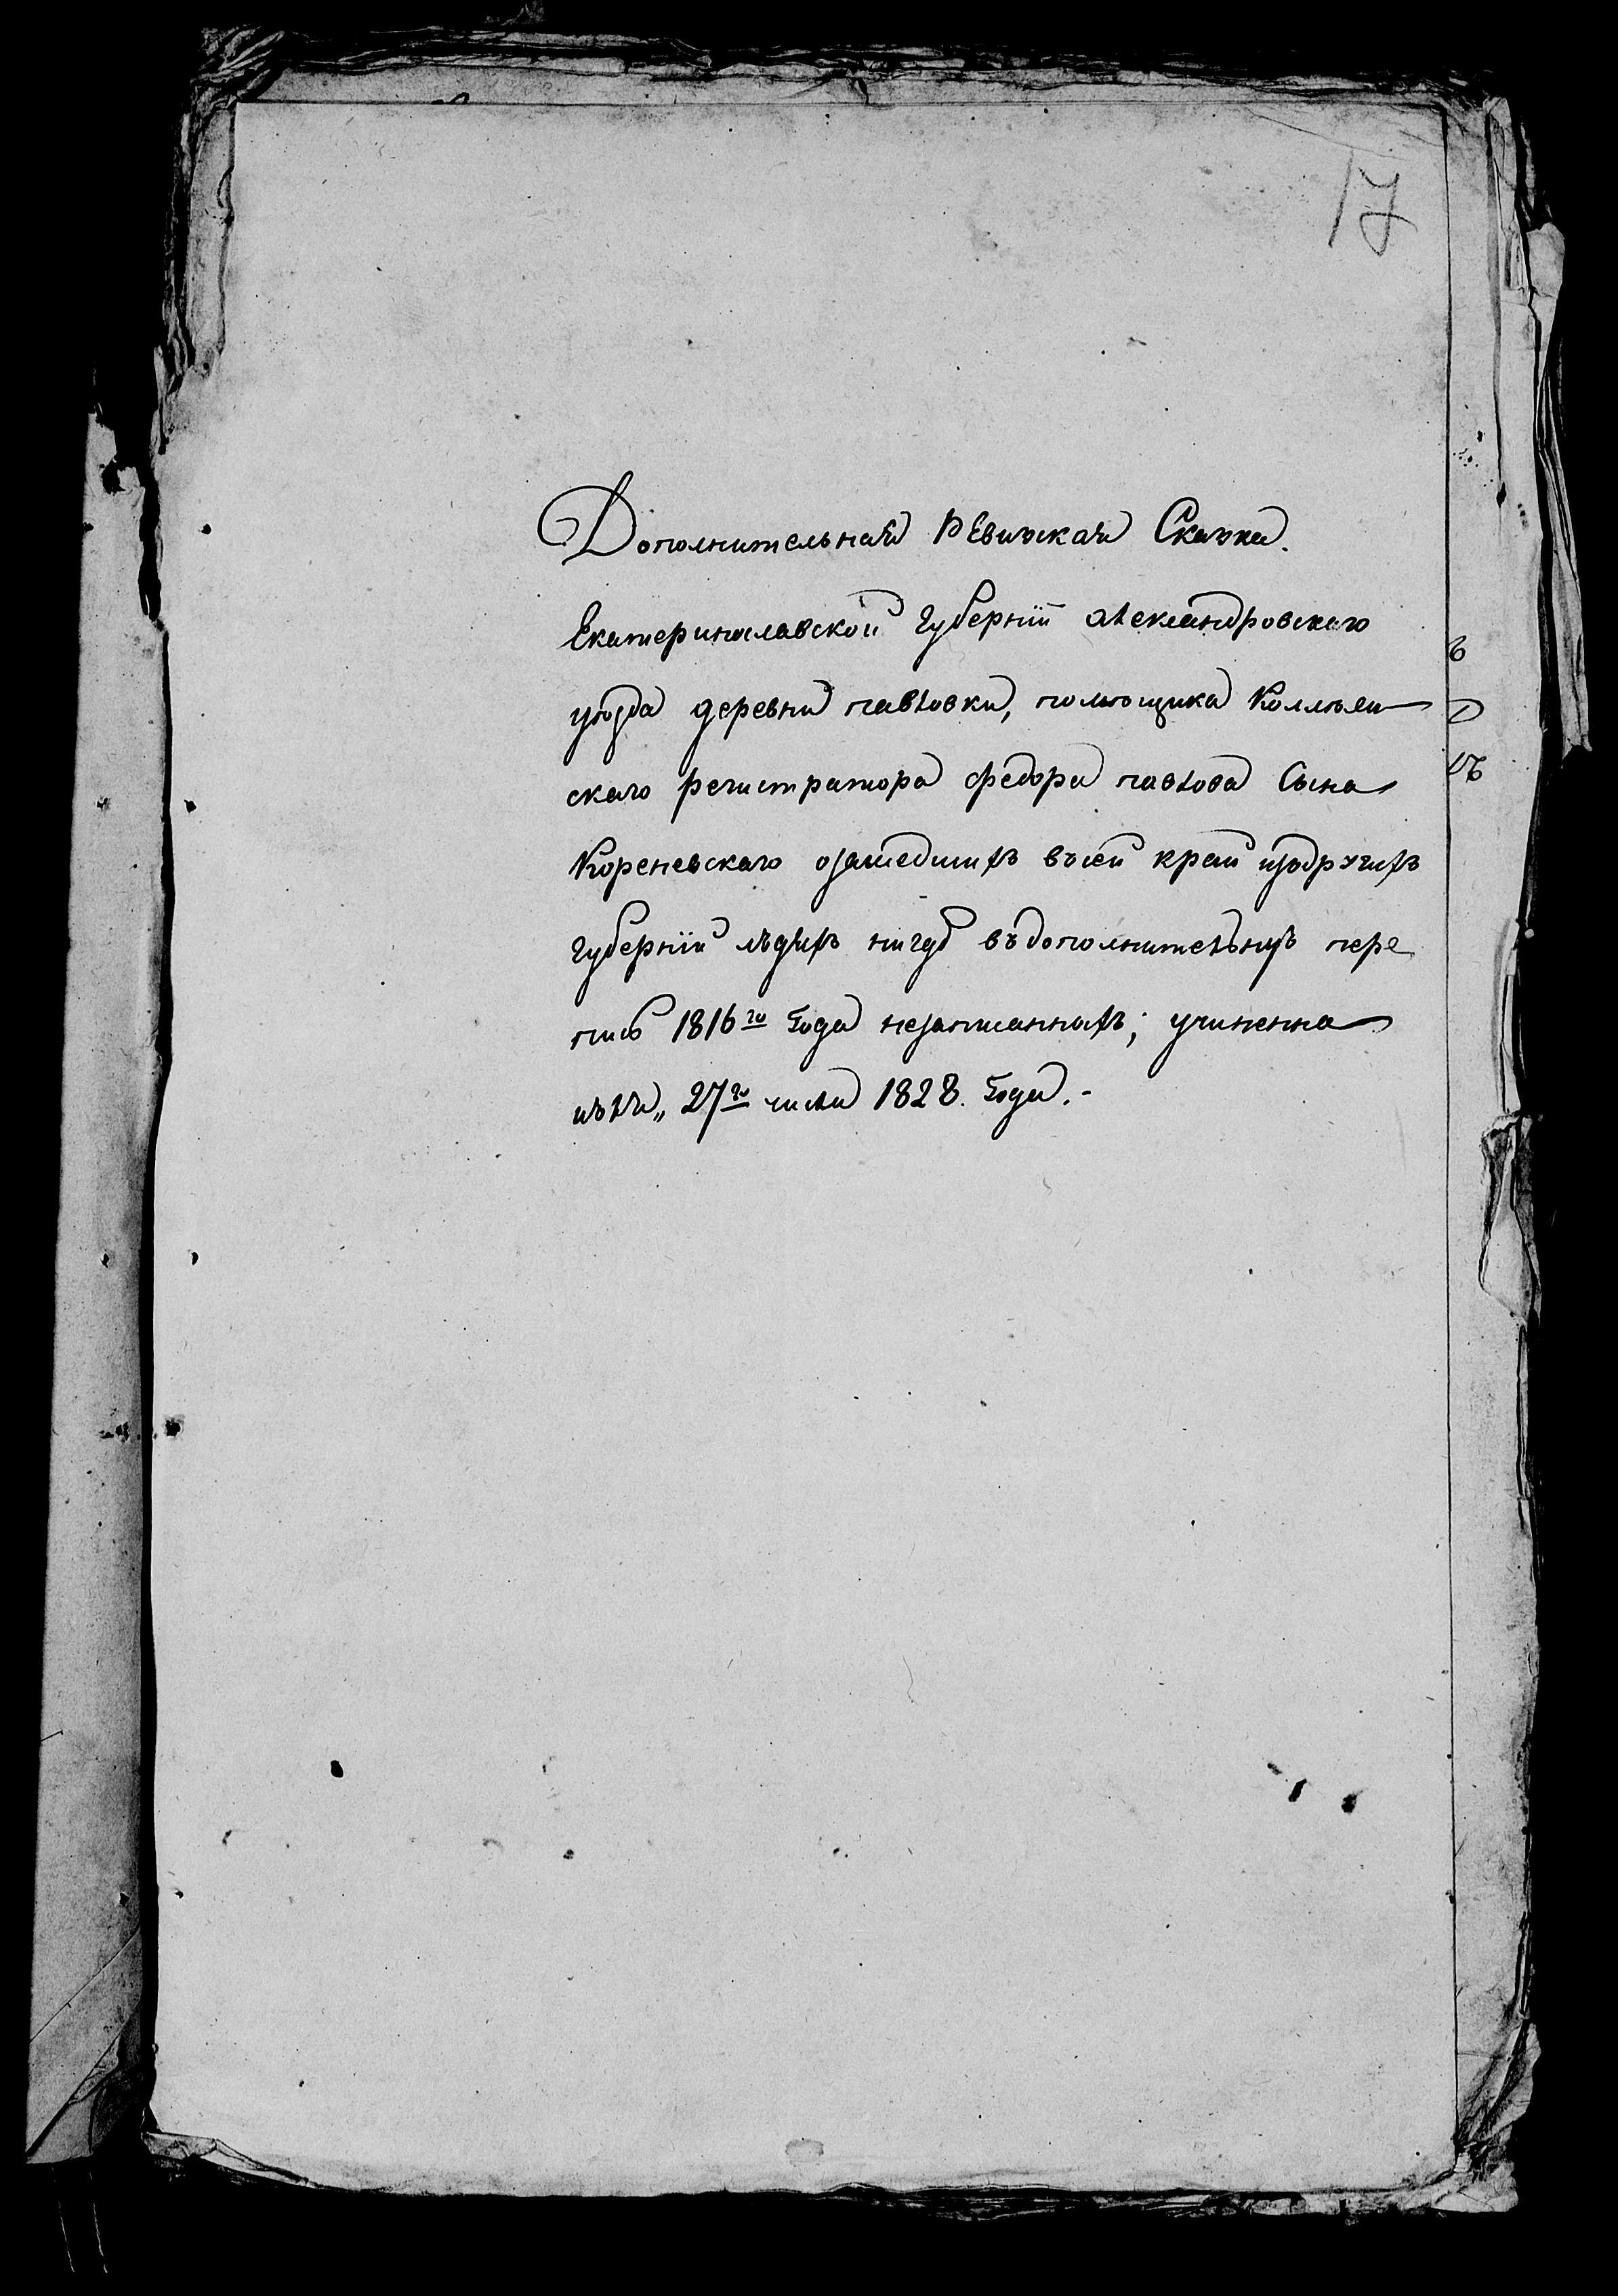 17
Дополнительная Ревизская Сказка.
Екатеринославской губернїи александровскаго
уѣзда деревни павловки, помѣщика Коллѣжи
скаго регистратора федора павлова Сына
Кореневскаго озашедшихъ въсей край издругихъ
губернїи людяхъ нигдѣ въдополнительную пере
пись 1816го Года незаписанныхъ; учиненна
27го числа 1828. Года.-